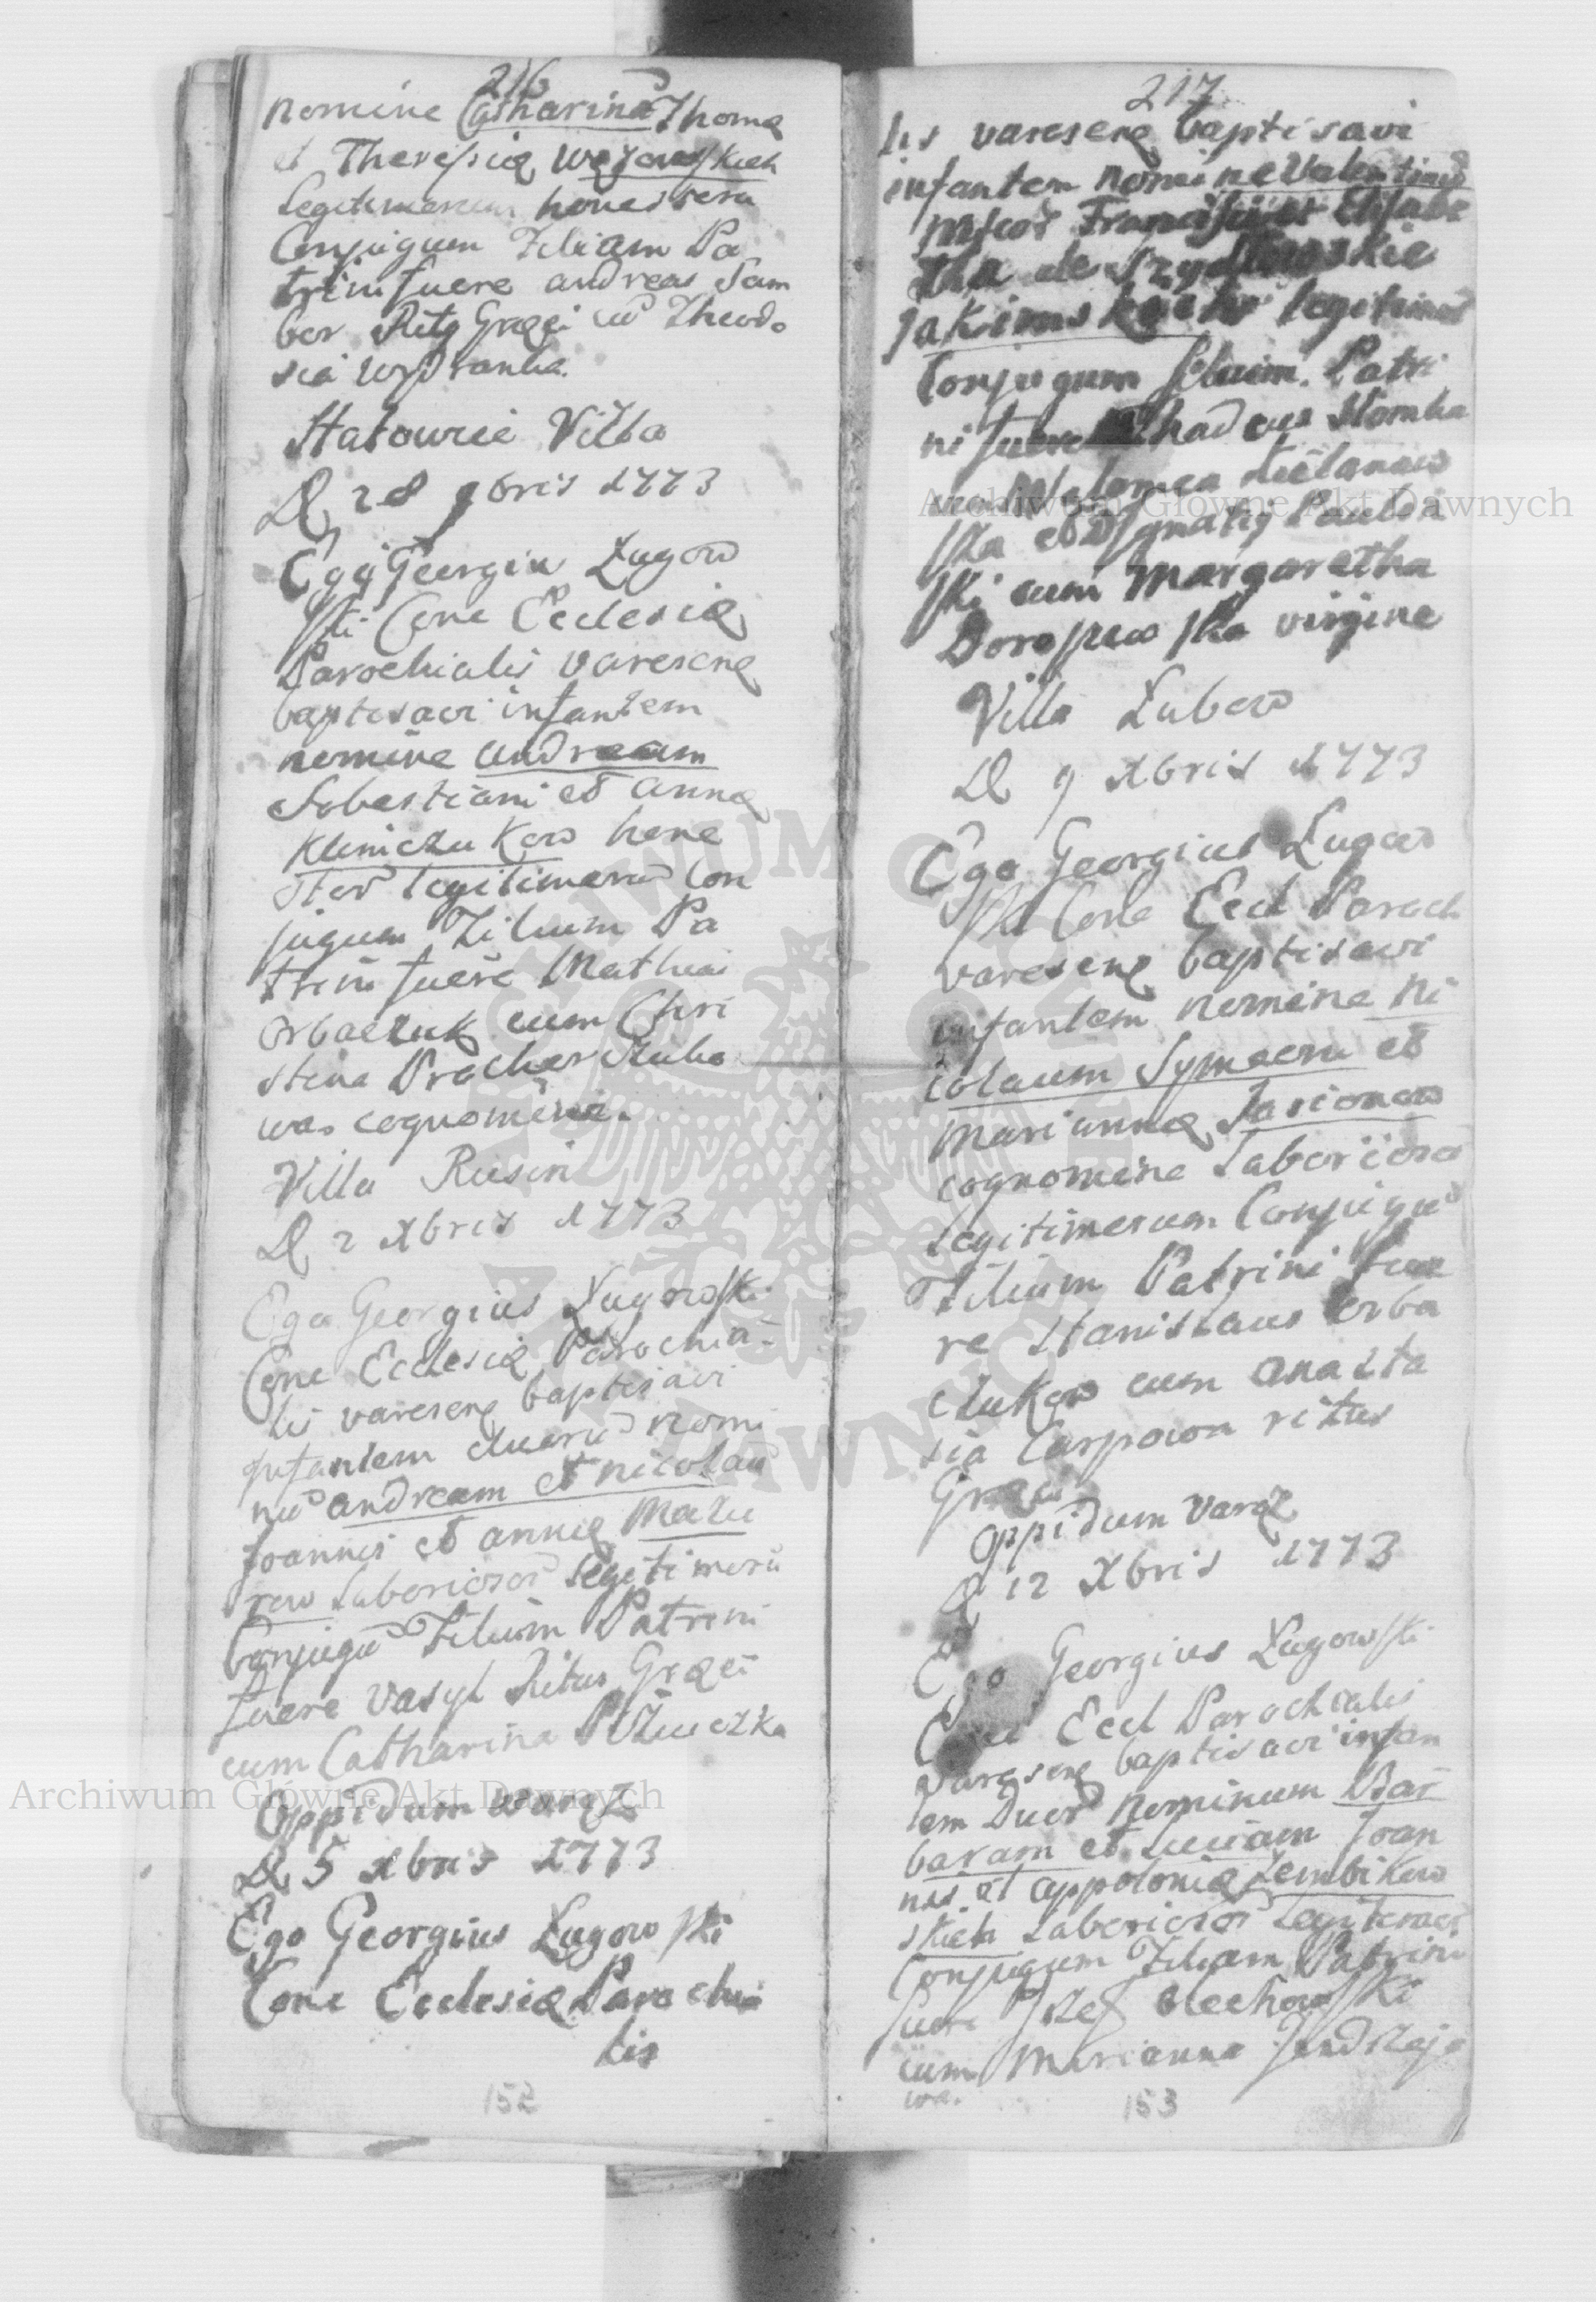 216
nomine Catharinã Thomæ
et Theresiæ
Legitimorum honestoru
Conjugum Filiam Pa
trini fuere andreas Sam
bor Ritg Græci cũ Theodo
sia Wydranka.
Villa
D 28 9bris 1773
Ego Georgius Ługow
ski Cone Ecclesiæ
Parochialis Varesenę
baptisavi infantem
nomine andream
Sebestiani et annæ
Klimczukow hone
stor legitimorũ Con
jugum Filium Pa
trini fuere Mathias
Orbaczuk cum Chri
stina
was cognomine.
Villa Rusin
D 2 Xbris 1773
Ego Georgius Ługowski
Cone Ecclesiæ Parochia
lis varesenę baptisavi
Infantem duorũ nomi
nũ andream et nicolaũ
Joannis et annæ Mazu
row Laboriosor Legitimorũ
Conjugũ Filium Patrini
fuere Vasyl Ritus Græci
cum Catharina
Oppidum Waręz
D 5 Xbris 1773
Ego Georgius Ługowski
Cone Ecclesiæ Parochia
lis
152
217
lis varesenę baptisavi
infantem nomine Valentinũ
Francisci et Elisabe
tha de
legitimor
Conjugum filium. Patri
ni fuere Thadeus Slomka
cum
ska et D Ignatij Pawlow
ski cum Margaretha
virgine
Villa Lubow
D 9 Xbris 1773
Ego Georgius Lugow
ski Cone Eccl Paroch
varesenę baptisavi
infantem nomine Ni
colaum Symeoni et
Mariannæ
cognomine Laborioso
Legitimorum Conjugũ
Filium Patrini fue
re Stanislaus Orba
czukow cum Anasta
sia Carpowa ritus
Græci
Oppidum Varęz
D 12 Xbris 1773
Ego Georgius Lugowski
Cone Eccl Parochialis
Varesenę baptisavi infan
tem Duor Nominum Bar
baram et Luciam Joan
nis et Appoloniæ Zembikow
skich Laboriosor Legitimor
Conjugum Filiam Patrini
fuere Jozef Blechowski
cum Marianna Jendrzejo
wa.
153
Archiwum Główne Akt Dawnych
Archiwum Główne Akt Dawnych
ARCHIWUM GŁÓWNE
AKT DAWNYCH